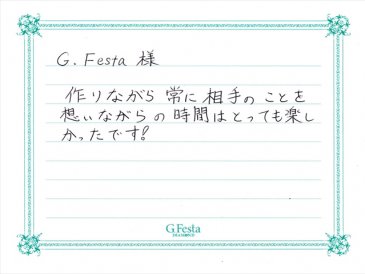 G.Festa 様
作りながら常に相手のことを
想いながらの時間はとっても楽し
かったです!
G.Festa